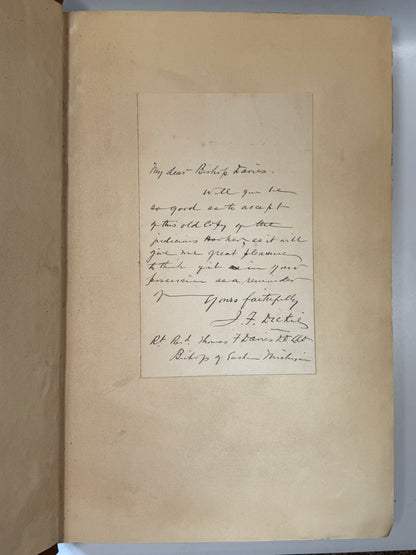 My dear Bishop Davies.
Will you be
so good as to accept
of this old Copy of the
judicious Hooker, as it will
give me great pleasure
to think of it as in your
possession as a reminder
of
Yours faithfully
J. F. Dickie
Rt Revd. Thomas F Davies DD
Bishop of Eastern Michigan